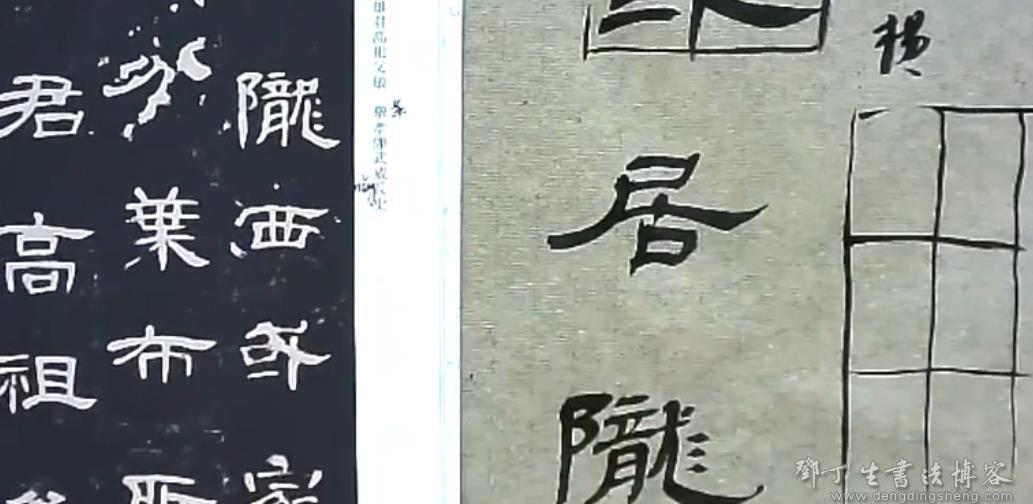 楊
居隴
雄君高祖父敏 舉孝廉武威長史
隴西或家
分葉布所
君高祖
鄧丁生書法博客
www.dengdingsheng.com